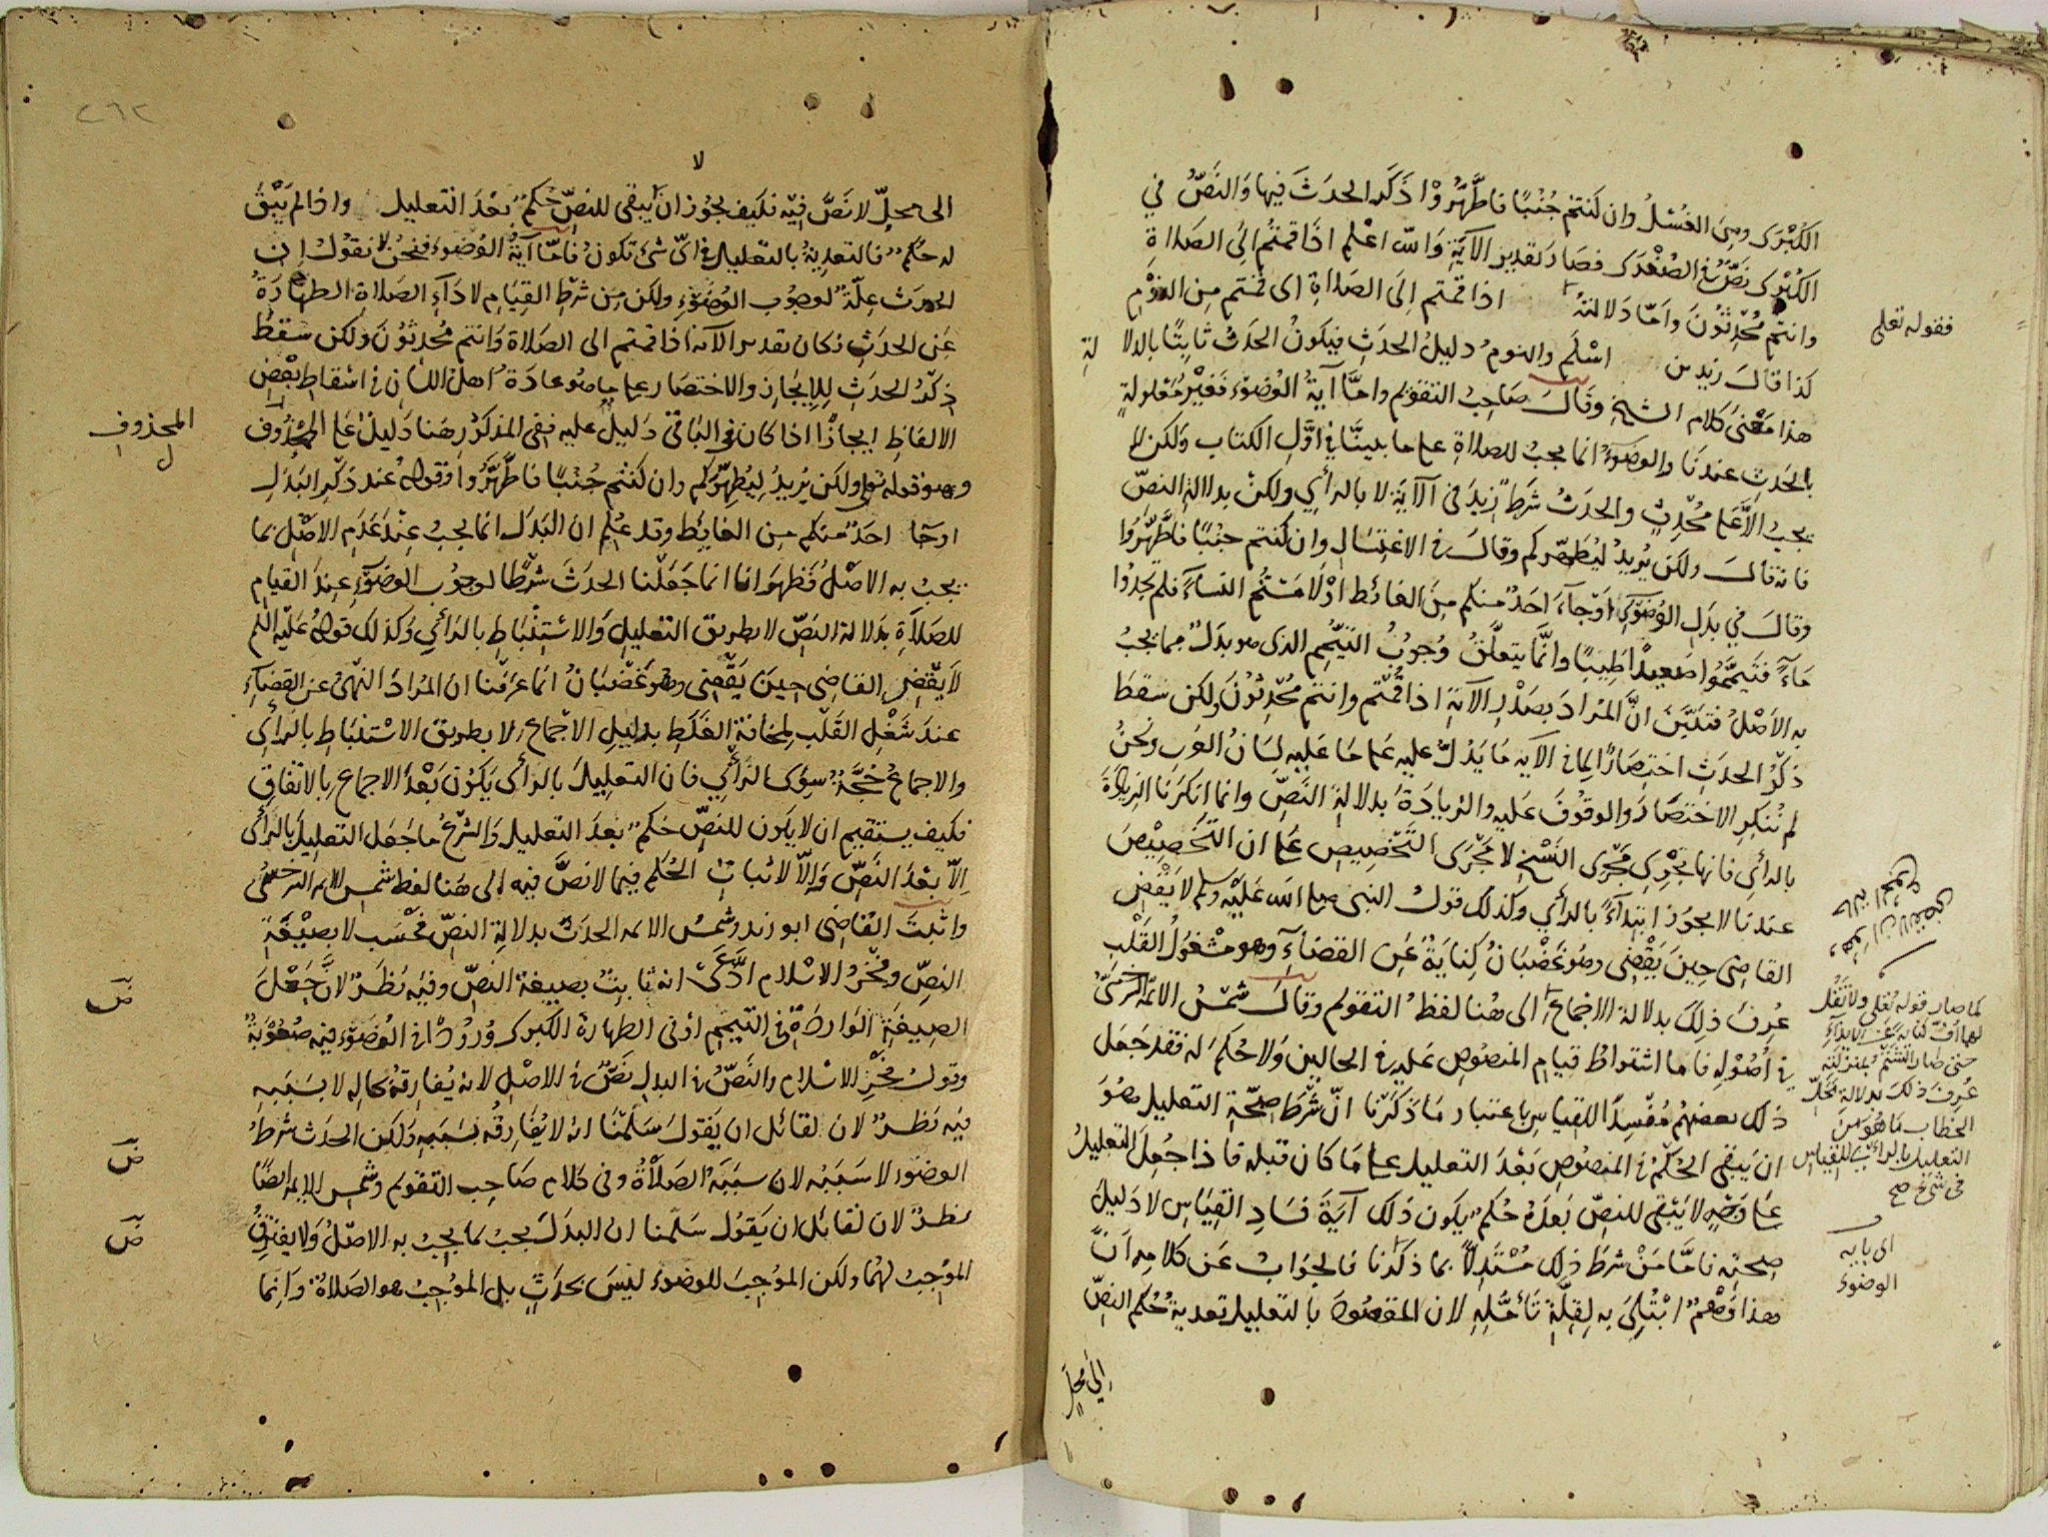 الكبرى وهي الغسل وان كنتم جنبًا فاطَّهَّرُوْا ذكر الحدث فيها والنصُّ في
الكبرى نصٌّ في الصغرى فصار تقدير الآية والله اعلم اذا قمتم الى الصلاة
وانتم مُحْدِثُونَ وامّا دلالته اذا قمتم الى الصلاة اى قمتم مِن النَّوم
كذا قال زيد بن اسْلَم والنوم دليلُ الحدثِ فيكونُ الحدثُ ثابتًا بالدلا لة
هذا معْنى كلام الشيخ وقال صاحب التقويم وامّا آيةُ الوضوء فغيْر مَعْلولةٍ
بالحدثِ عندنا والوضوءُ انما يجبُ للصلاة على ما بينَّا في اوَّلِ الكتاب ولكن لا
يجبُ الَّا على مُحْدِثٍ والحدثُ شرطٌ زِيدَ في الآية لا بالرأي ولكنْ بدلالة النصّ
فانه قال ولكن يُريدُ ليُطهّركم وقال في الاغتسال وان كنتم جنبًا فاطَّهَّرُوا
وقال في بدل الوضوء اَوْجآءَ احَدٌ منكم مِنَ الغائط اَوْ لَامَسْتُم النساءَ فلم تجدُوا
مَآءً فتيمَّمُوا صعيدًا طيبًا وانَّما يتعلَّقُ وُجوبُ التيَّمم الذى هو بدلٌ مما يجبُ
به الاَصْلُ فتبَيَّنَ انَّ المرادَ بصَدْرِ الآيةِ اذا قُمْتم وانتم محْدِثُوْنَ ولكن سقطَ
ذِكْرُ الحدثِ اختصارًا لِما في الآيه مَا يَدُلُّ عليه على مَا عَليهِ لِسَانُ العَرب ونحنُ
لم نُنكِرِ الاختصَارَ والوقُوفَ عَليهِ والزيادَةَ بدلالةِ النَّصِّ وانما انكرنَا الزيادَةَ
بالرأي فانها تجْرِي مَجْرَى النَّسْخِ لا مَجْرَى التَّخصِيصِ على ان التَّخْصِيْصَ
عندنا لا يجوُز ابتدآءً بالرأي وكذلك قولُ النبى صلى الله عليْه وسلم لا يَقْضِ
القاضِى حِينَ يَقْضِى وهُوَ غَضْبَانُ كِنايَةٌ عَنِ القضَاءِ وهو مشْغولُ القَلْب
عُرِفَ ذلِكَ بدلالة الاِجماعِ الى هُنا لفظُ التقويم وقال شمْسُ الائمَّة السَّرخسىُّ
في اُصُوْلِه فاما اشتراطُ قيام المنصُوصِ عَليه في الحالينِ وَلاحُكمَ له فقد جَعَل
ذلك بعضهُم مُفْسِدًا للقياسِ باعتبار ما ذكَرْنا انَّ شَرْطَ صِحَّةِ التعليل هُوَ
ان يَبقى الحُكمُ في المنصُوصِ بَعْدَ التعليلِ على مَا كان قبله فاذا جُعِلَ التعليلُ
على وَجْهٍ لا يَبْقى للنصّ بَعْدَهُ حُكم يكون ذلك آيةَ فَسَادِ القِيَاسِ لا دَلِيلَ
صِحّتِه فامَّا مَنْ شرَطَ ذلِك مُسْتَدِلًّا بما ذكرنا فالجوابُ عَن كلامِه اَنَّ
هذا وَهْمٌ ابْتُلِىَ به لِقِلَّةِ تَأمُّلِهِ لان المقصُودَ بالتعليل تعدية حُكم النصّ
اِلَى مَحلٍّ
فقوله تعلى
كما صار قوله تعلى ولا تقُل
لهما اُفّ كناية عن الايذآءِ
حتى صار الشتم بمنزلته
عُرِفَ ذلك بدلالة محَلّ
الخطاب ما هُوَ مِنَ
التعليل بالرأي للقياس
في شئ صح
اى بآية
الوضوء
الى محلٍّ لا نَصَّ فِيْه فكيف يجُوزُ ان يبقى للنصِّ حُكم بعْدَ التعليل واذا لم يَبْقَ
له حُكم فالتعدِيَةُ بالتعليل في اىّ شئ تكونُ فامّا آيةُ الوُضوءِ فنحنُ لا نقوْلُ اِن
الحدث عِلّةٌ لوجُوب الوُضُوءِ ولكن مِن شرْطِ القِيَامِ لادَآءِ الصَلاة الطهارَةُ
عَنِ الحدثِ فكان تقدير الآية اذا قمتم الى الصَلاةِ وَانتم مُحْدِثوُنَ ولكن سَقطَ
ذِكْرُ الحدَثِ لِلإيجَاز والاختصَارِ على ما هو عادَةُ اهل اللسَان في اسْقاطِ بعْضِ
الالفَاظِ ايجازًا اذا كان في البَاقى دَليلٌ عليه ففى المذكور هنا دَليلٌ على المحذُوف
وهو قوله تعلى ولكن يُريدُ لِيُطهِّرَكم وان كنتم جُنبًا فاطَّهَّرُوا وقولهُ عند ذكْرِ البَدَلِ
اوجآ احَدٌ منكم مِن الغايِطِ وقد عُلِم ان البَدَل انما يجبُ عِنْدَ عَدَمِ الاصْلِ بما
يجبُ به الاصْلُ فظهَرَ انا انما جَعَلْنا الحدَثَ شَرْطًا لوجُوب الوضوءِ عِندَ القيام
للصَلاةِ بدَلالة النصِّ لا بطريق التعليلِ والاسْتِنْبَاطِ بالرأي وكذلك قولُهُ عَليْه السَّلم
لا يَقْضِ القاضِى حِينَ يَقْضِى وهُوَ غَضْبَانُ انما عَرَفْنا ان المُرادَ النهْىُ عن القضَآءِ
عندَ شَغْلِ القَلْبِ لمخافةِ الغَلَطِ بدليلِ الاِجماعِ لا بطريق الاسْتنبَاطِ بالرأي
والاِجماعُ حُجَّةٌ سِوَى الرَّأيِ فان التعليلَ بالرأى يَكوُن بَعْدَ الاجماعِ بالاتفاقِ
فكيف يستقيم ان لا يكون للنصِّ حُكم بعدَ التعليل والشَّرعُ ما جَعل التعليلَ بالرأى
اِلّا بعْدَ النَّصِّ وَاِلّا لاثباتِ الحُكم فيما لا نصَّ فيه الى هَنا لفظ شمس الايمه السرخسى
واثبتَ القاضى ابو زيد وشمْسُ الائمه الحدثَ بدلالةِ النصِّ فحَسْب لا بصيْغةِ
النصِّ وفخْرُ الاسْلام ادَّعَى انه ثابِتٌ بصِيغةِ النصِّ وفيْه نظَرٌ لانَّ جَعْلَ
الصيغةِ الوارِدَةِ في التيمم او في الطهارة الكبرى وُرُودًا في الوُضوءِ فيه صُعُوْبَةٌ
وقولُ فخْرِ الاسْلام والنَّصُّ في البدل نَصٌّ في الاصْل لانه يُفارِقهُ بحالِه لا بسَبَبِه
فيْه نظرٌ لان لقائل ان يَقولَ سَلَّمْنَا انه لا يُفارِقه بسَبَبِه ولكِن الحدَث شرْطُ
الوضوء لا سَبَبُه لان سَبَبَه الصَلاةُ وفى كلام صَاحِب التقويم وشمس الايمه ايضًا
نظَرٌ لان لقائل ان يَقولَ سَلَّمنا ان البدلَ يجبُ بما يجبُ به الاصْلُ وَلا يفتَرِقُ
الموْجِبُ لهُمَا ولكن الموْجِبَ للوضوء ليسَ بحَدَثٍ بل الموُجِبُ هو الصَلاةُ وَانِما
المحذوف
ل
ض
ض
ض
لا
٢٦٢